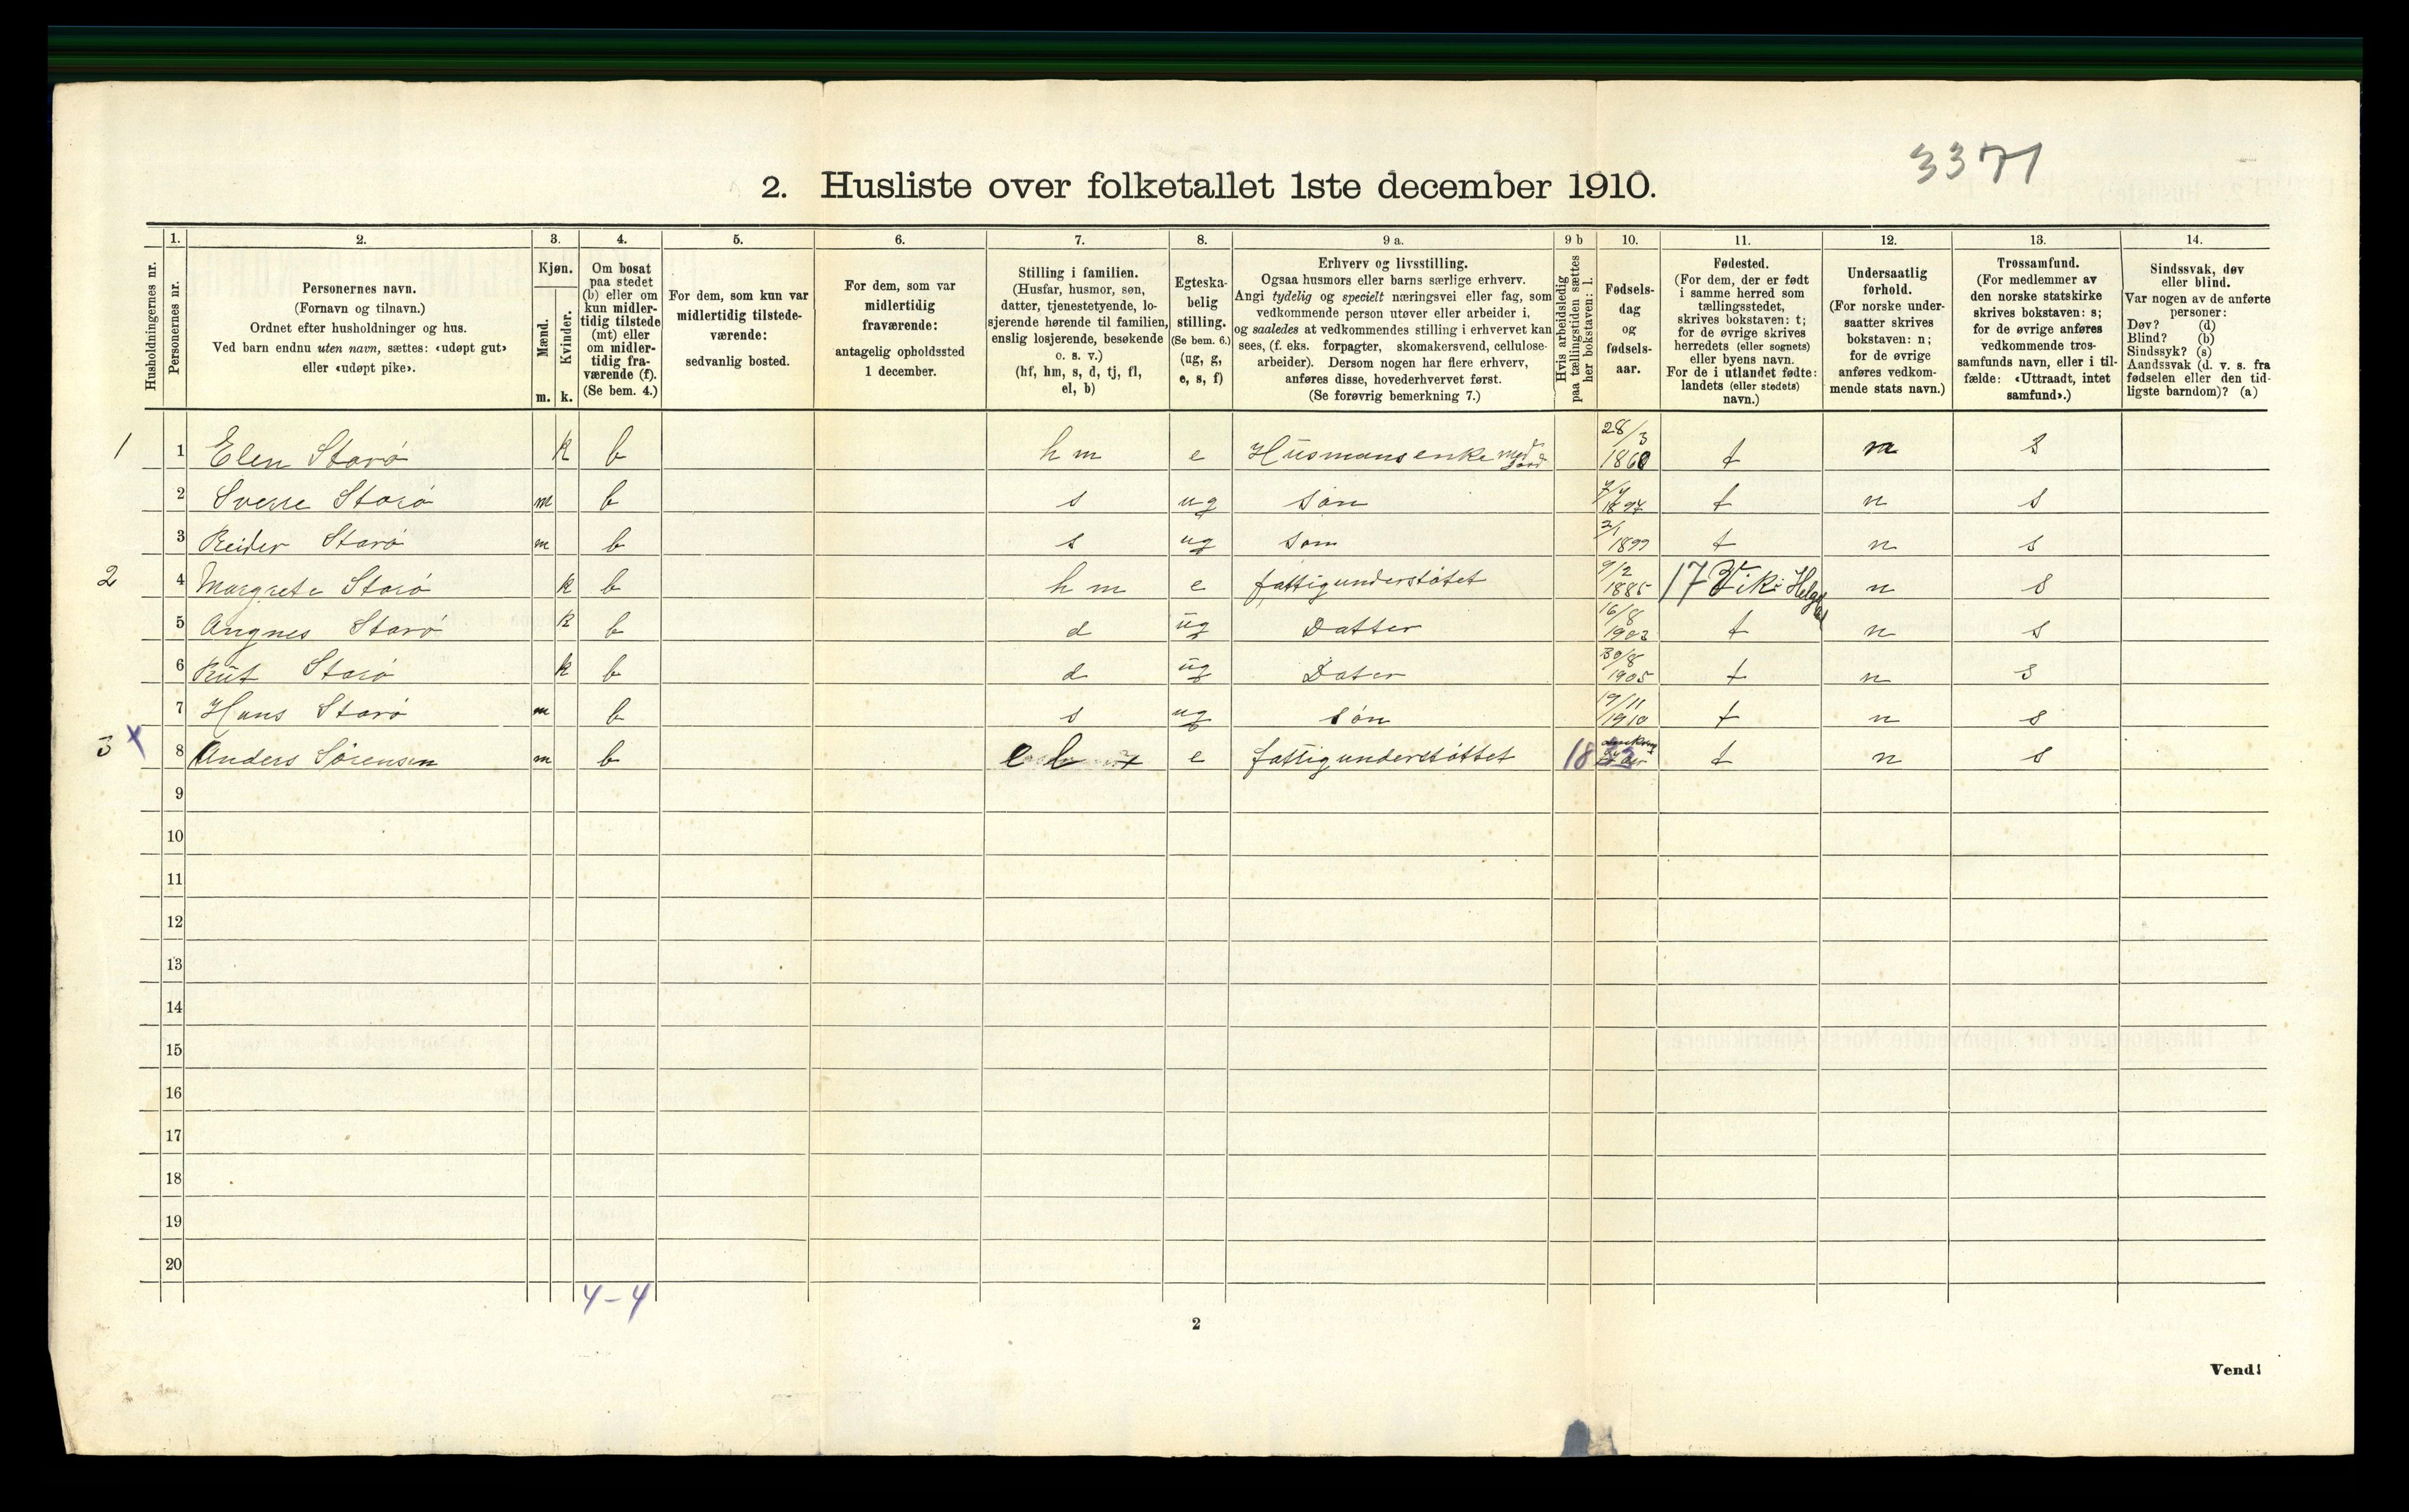 3371
2. Husliste over folketallet 1ste december 1910.
1. 2. 3. 4. 5. 6. 7. 8. 9 a. 9 b 10. 11. 12. 13. 14.
Husholdningernes nr.
Personernes nr.
Personernes navn.
(Fornavn og tilnavn.)
Ordnet efter husholdninger og hus.
Ved barn endnu uten navn, sættes: «udøpt gut»
eller «udøpt pike».
Kjøn.
Mænd.
Kvinder.
m. k.
Om bosat
paa stedet
(b) eller om
kun midler-
tidig tilstede
(mt) eller
om midler-
tidig fra-
værende (f).
(Se bem. 4.)
For dem, som kun var
midlertidig tilstede-
værende:
sedvanlig bosted.
For dem, som var
midlertidig
fraværende:
antagelig opholdssted
1 december.
Stilling i familien.
(Husfar, husmor, søn,
datter, tjenestetyende, lo-
sjerende hørende til familien,
enslig losjerende, besøkende
o. s. v.)
(hf, hm, s, d, tj, fl,
el, b)
Egteska-
belig
stilling.
(Se bem. 6.)
(ug, g,
e, s, f)
Erhverv og livsstilling.
Ogsaa husmors eller barns særlige erhverv.
Angi tydelig og specielt næringsvei eller fag, som
vedkommende person utøver eller arbeider i,
og saaledes at vedkommendes stilling i erhvervet kan
sees, (f. eks. forpagter, skomakersvend, cellulose-
arbeider). Dersom nogen har flere erhverv,
anføres disse, hovederhvervet først.
(Se forøvrig bemerkning 7.)
Hvis arbeidsledig
paa tællingstiden sættes
her bokstaven: l.
Fødsels-
dag
og
fødsels-
aar.
Fødested.
(For dem, der er født
i samme herred som
tællingsstedet,
skrives bokstaven: t;
for de øvrige skrives
herredets (eller sognets)
eller byens navn.
For de i utlandet fødte:
landets (eller stedets)
navn.)
Undersaatlig
forhold.
(For norske under-
saatter skrives
bokstaven: n;
for de øvrige
anføres vedkom-
mende stats navn.)
Trossamfund.
(For medlemmer av
den norske statskirke
skrives bokstaven: s;
for de øvrige anføres
vedkommende tros-
samfunds navn, eller i til-
fælde: «Uttraadt, intet
samfund».)
Sindssvak, døv
eller blind.
Var nogen av de anførte
personer:
Døv? (d)
Blind? (b)
Sindssyk? (s)
Aandssvak (d. v. s. fra
fødselen eller den tid-
ligste barndom)? (a)
1 1 Elen Starø k b hm e Husmansenke med jord 28/3 1860 t n s
2 Sverre Starø m b s ug søn 1897 t n s
3 Reider Starø m b s ug søn 2/1 1899 t n s
2 4 Margrete Starø k b hm e fattigunderstøtet 9/2 1885 17 Vik i Helgel n s
5 Angnes Starø k b d ug Datter 16/8 1903 t n s
6 Rut Starø k b d ug Dater 30/8 1905 t n s
7 Hans Starø m b s ug søn 19/11 1910 t n s
3 x 8 Anders Sørensen m b el e fattigunderstøttet 1833 t n s
9
10
11
12
13
14
15
16
17
18
19
20
4-4
2
Vend!